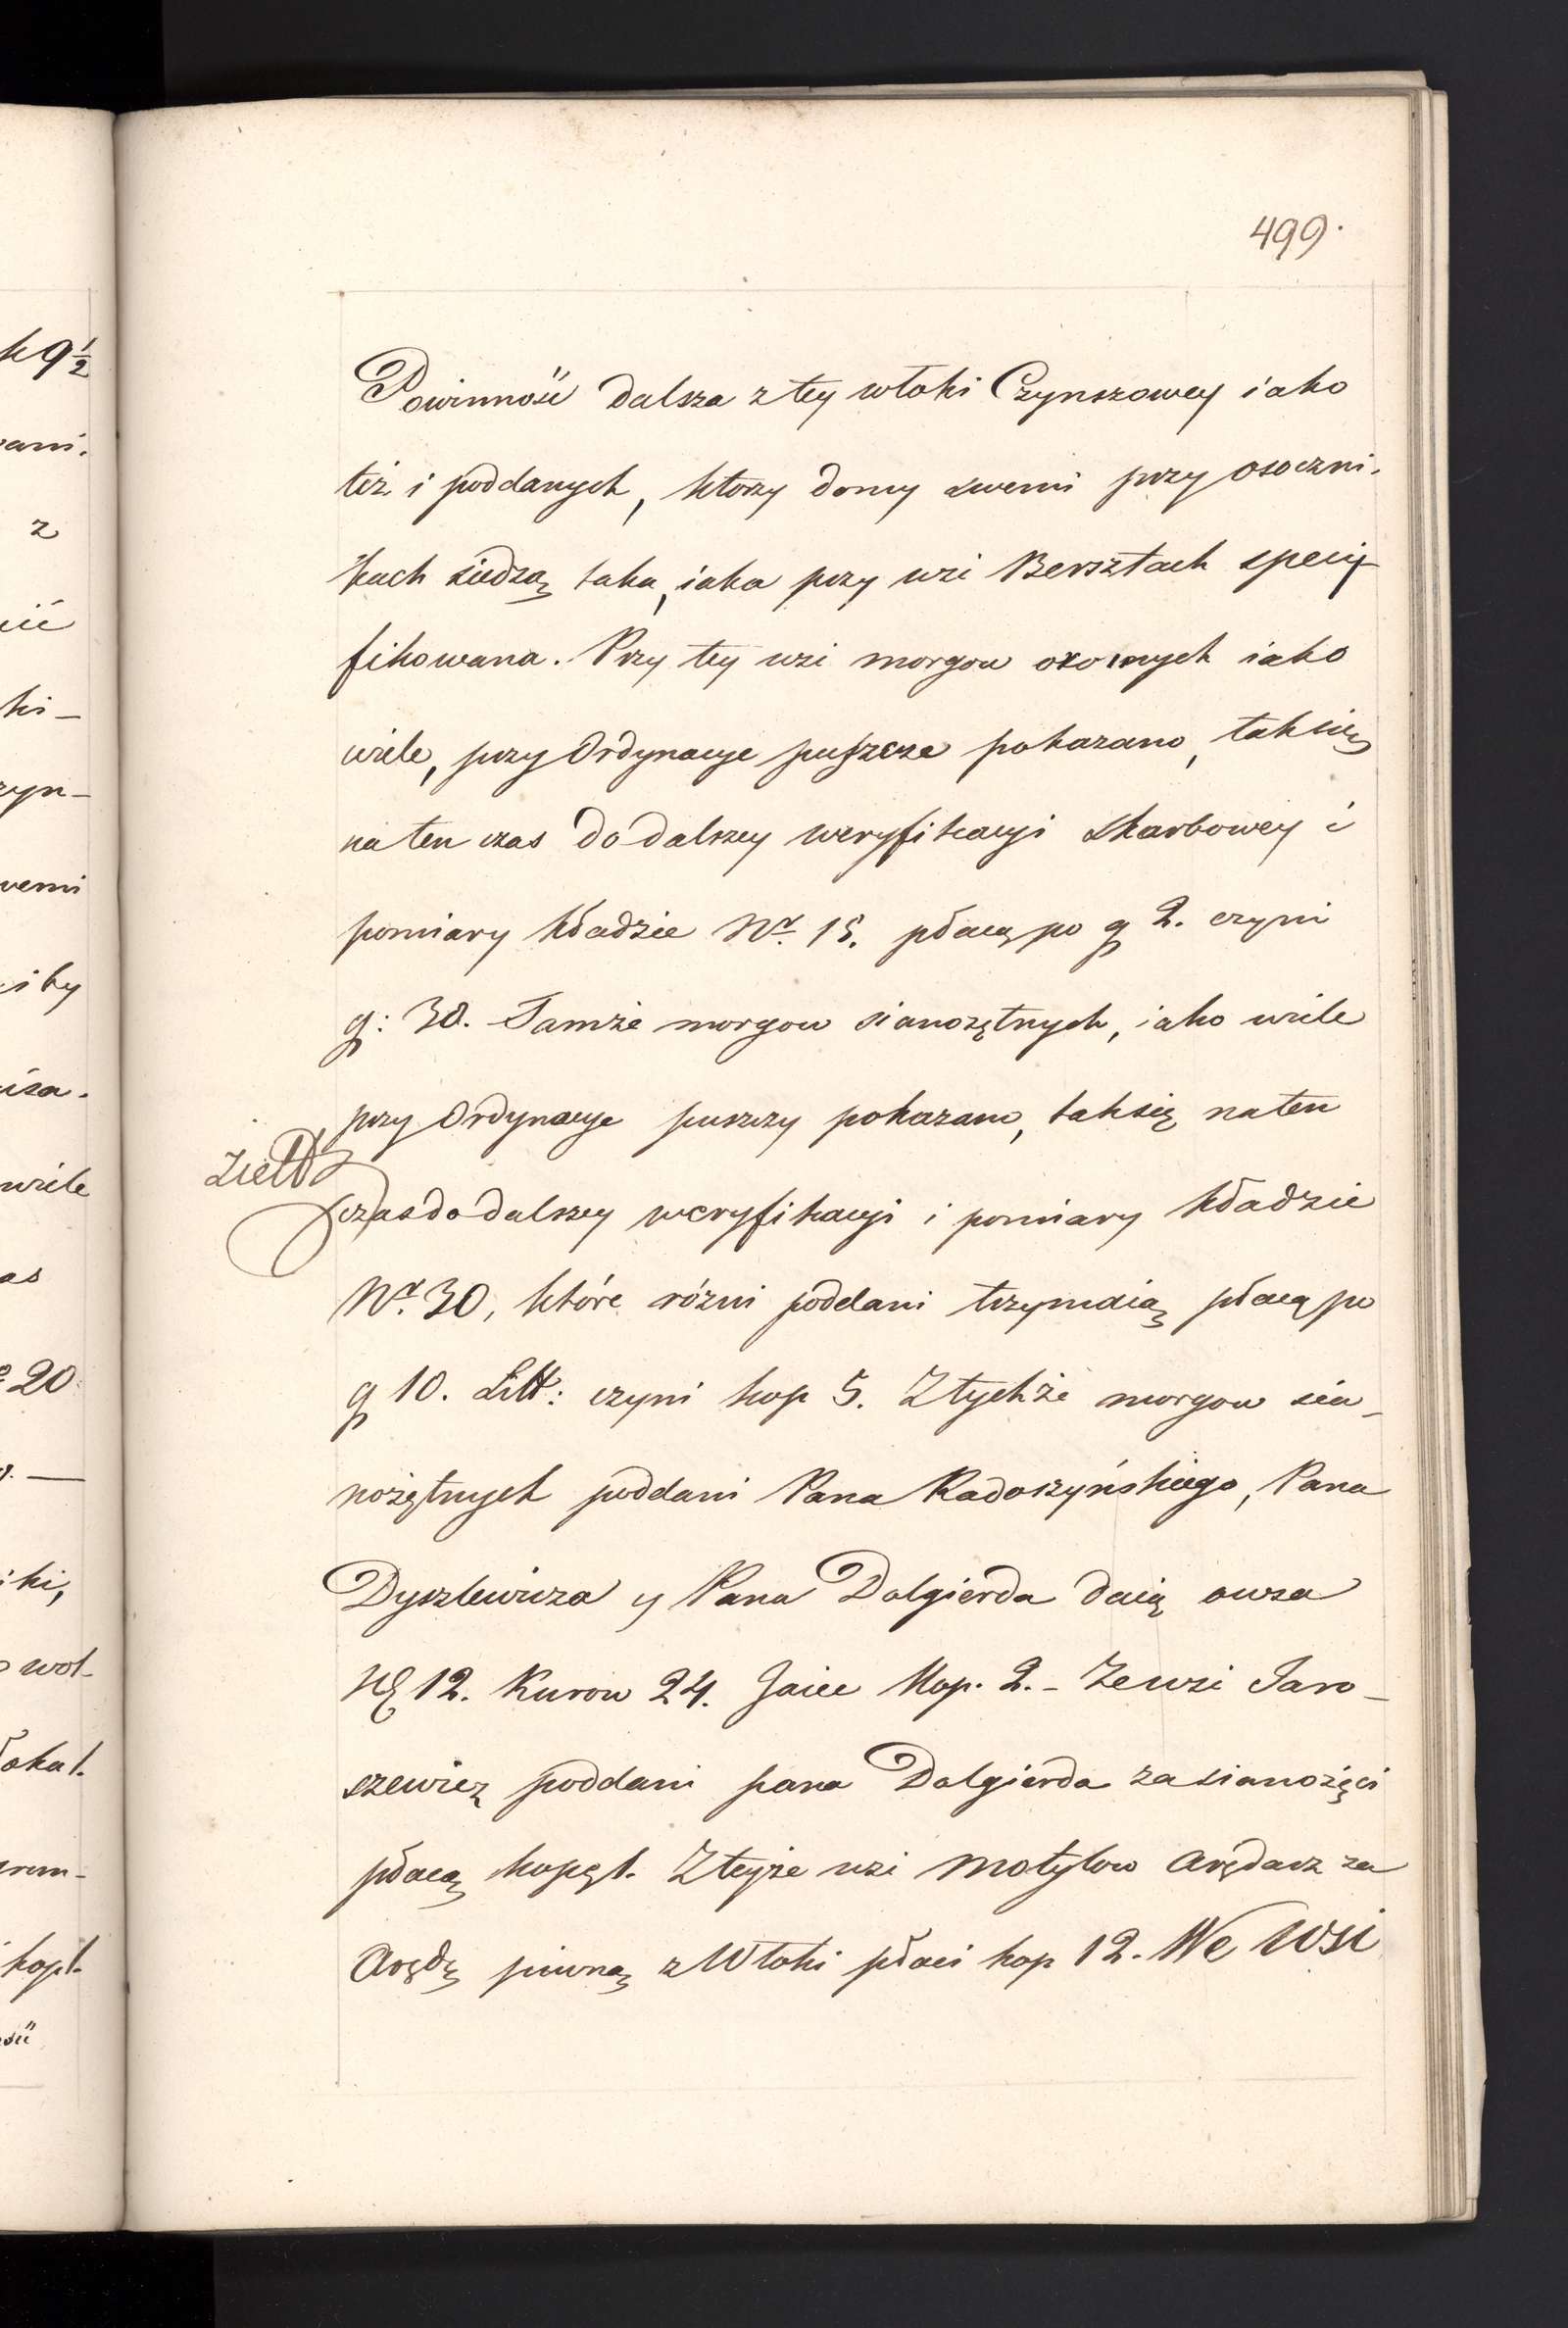 499.
Powinność dalsza z tey włoki Czynszowey iako
też i poddanych, ktorzy domy swemi przy osoczni-
kach siedzą taka, iaka przy wsi Bersztach specy-
fikowana. Przy tey wsi morgow oromych iako
wiele, przy Ordynacye puszcze pokazano, tak się
na ten czas do dalszey weryfikacyi Skarbowey i
pomiary kładzie Nr. 15. płacą po g 2. czyni
g: 30. Tamże morgow sianożętnych, iako wiele
przy Ordynacye puszczy pokazano, tak się na ten
czas do dalszey weryfikacyi i pomiary kładzie
Nr. 30, które różni poddani trzymaią płacą po
g 10. Litt: czyni kop 5. Z tychże morgow sia-
nożętnych poddani Pana Radoszyńskiego, Pana
Dyszlewicza y Pana Dolgierda daią owsa
12. Kurow 24. Jaiec Kop. 2. - Ze wsi Jaro-
szewicz poddani pana Dolgierda za sianożęci
płacą kopę 1. Z teyże wsi Motylow Arędarz za
Arędę piwną z Włoki płaci kop 12. We Wsi
k 9½
z
ki-
zyn-
wiele
as
20
ki,
wol-
kop 1.